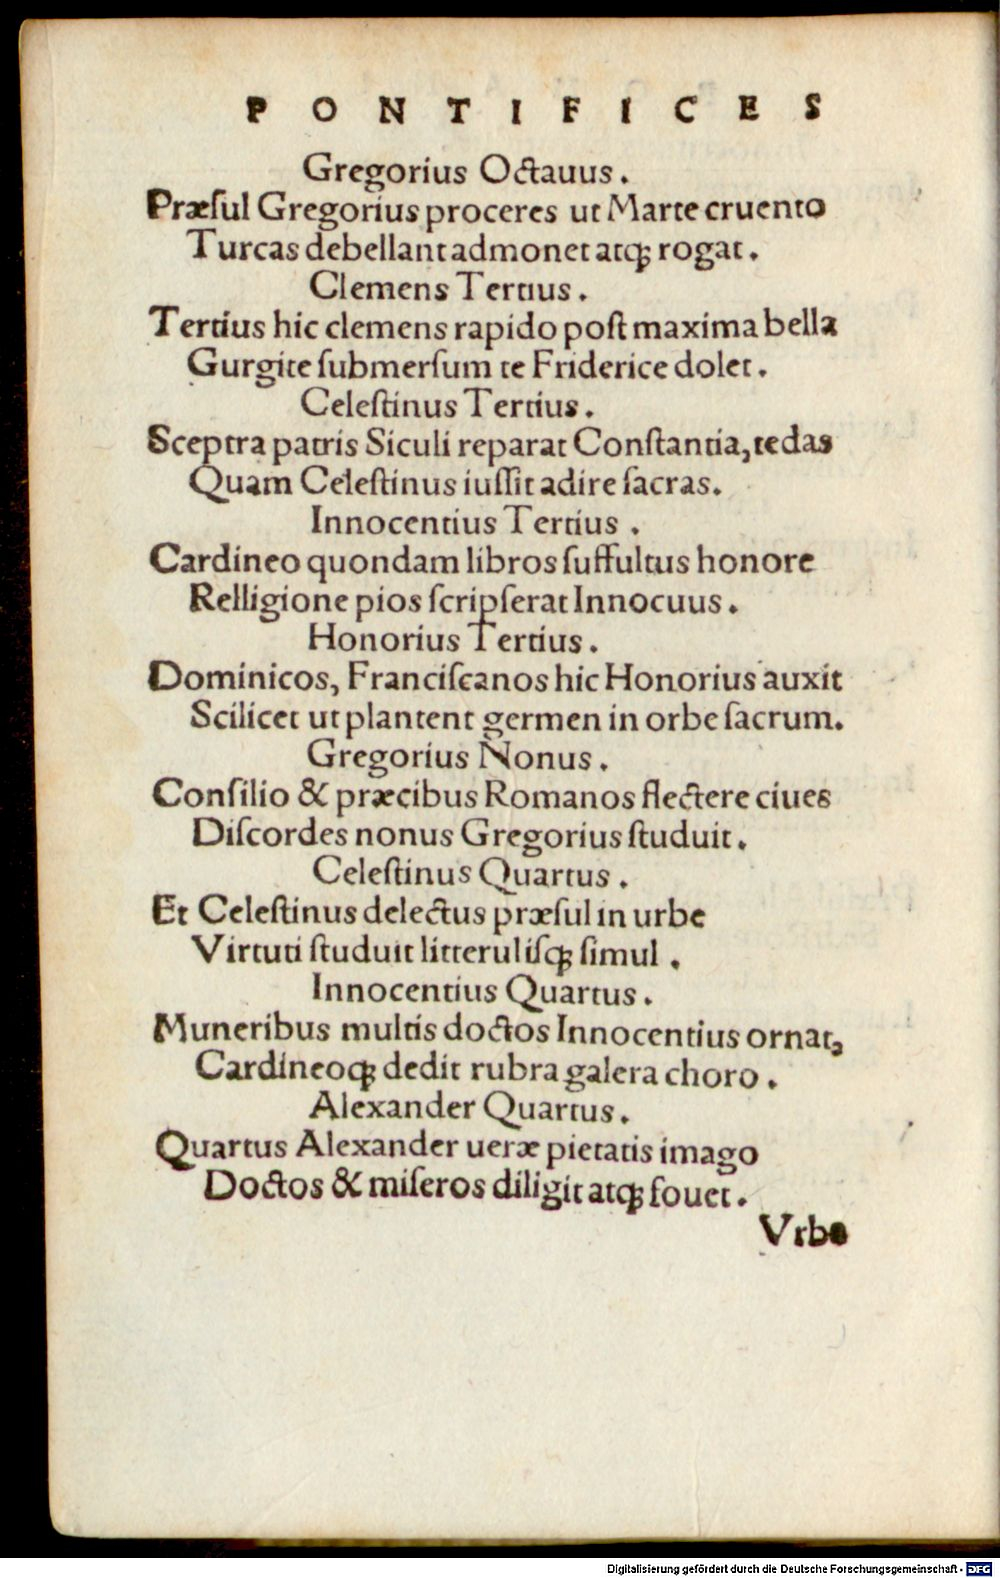 PONTIFICES
Gregorius Octauus.
Præſul Gregorius proceres ut Marte cruento
Turcas debellant admonet atqꝫ rogat.
Clemens Tertius.
Tertius hic clemens rapido poſt maxima bella
Gurgite ſubmerſum te Friderice dolet.
Celeſtinus Tertius.
Sceptra patris Siculi reparat Conſtantia, tedas
Quam Celeſtinus iuſſit adire ſacras.
Innocentius Tertius.
Cardineo quondam libros ſuffultus honore
Relligione pios ſcripſerat Innocuus.
Honorius Tertius.
Dominicos, Franciſcanos hic Honorius auxit
Scilicet ut plantent germen in orbe ſacrum.
Gregorius Nonus.
Conſilio & præcibus Romanos flectere ciues
Diſcordes nonus Gregorius ſtuduit.
Celeſtinus Quartus.
Et Celeſtinus delectus præſul in urbe
Virtuti ſtuduit litterulisqꝫ ſimul.
Innocentius Quartus.
Muneribus multis doctos Innocentius ornat,
Cardineoqꝫ dedit rubra galera choro.
Alexander Quartus.
Quartus Alexander ueræ pietatis imago
Doctos & miſeros diligit atqꝫ fouet.
Vrbe
Digitalisierung gefördert durch die Deutsche Forschungsgemeinschaft - DFG